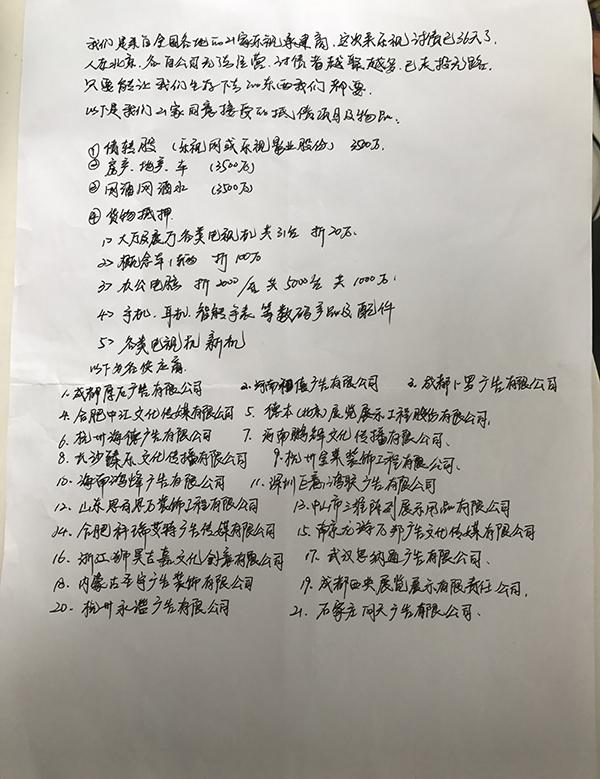 我们是来自全国各地的21家乐视供应商,这次来乐视讨债已36天了.
人在北京,各自公司无法经营.讨债者越聚越多,已走投无路.
只要能让我们生存下去的东西我们都要.
以下是我们21家同意接受的抵债项目及物品:
①债转股(乐视网或乐视影业股份) 3500万.
②房产、地产、车 (3500万)
③网酒网酒水 (3500万)
④货物抵押
1>大厅及展厅各类电视机共31台 折20万.
2>概念车1辆 折100万
3>办公电脑 折2000/台 共5000台 共1000万.
4>手机、耳机、智能手表等数码产品及配件
5>各类电视机新机
以下为各供应商.
1.成都厚石广告有限公司 2.河南福信广告有限公司 3.成都卜罗广告有限公司
4.合肥中江文化传媒有限公司 5.德本(北京)展览展示工程股份有限公司.
6.杭州海德广告有限公司 7.河南鹏辉文化传播有限公司.
8.长沙臻乐文化传播有限公司 9.杭州金累装饰工程有限公司.
10.海南鸿烽广告有限公司 11.深圳巨惠鸿联广告有限公司
12.山东思百思万装饰工程有限公司 13.中山市三维陈列展示用品有限公司
14.合肥科瑞艾特广告传媒有限公司 15.南京龙游万邦广告文化传媒有限公司
16.浙江狮昊古嘉文化创意有限公司 17.武汉思纳通广告有限公司.
18.内蒙古至宇广告装饰有限公司 19.成都西央展览展示有限责任公司.
20.杭州永谐广告有限公司 21.石家庄问天广告有限公司.